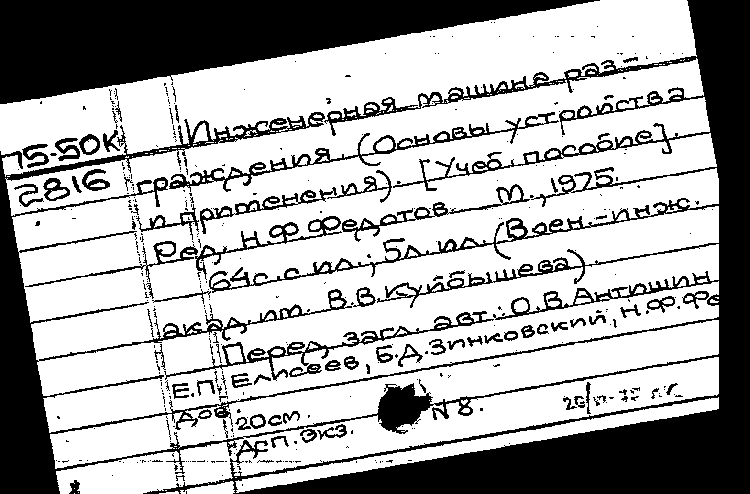 Инженерная машина раз-
75-50К
2816
граждения. (Основы устройства
и применения). [Учеб. пособие].
Ред. Н.Ф.Федотов. М., 1975.
64с. с ил.; 5л. ил. (Воен.-инж.
акад. им. В.В.Куйбышева).
Перед загл. авт.: О.В.Антишин
Е.П. Елисеев, Б.Д.Зинковский, Н.Ф.Фе
дов.
20см.
ДСП. Экз. N 8.